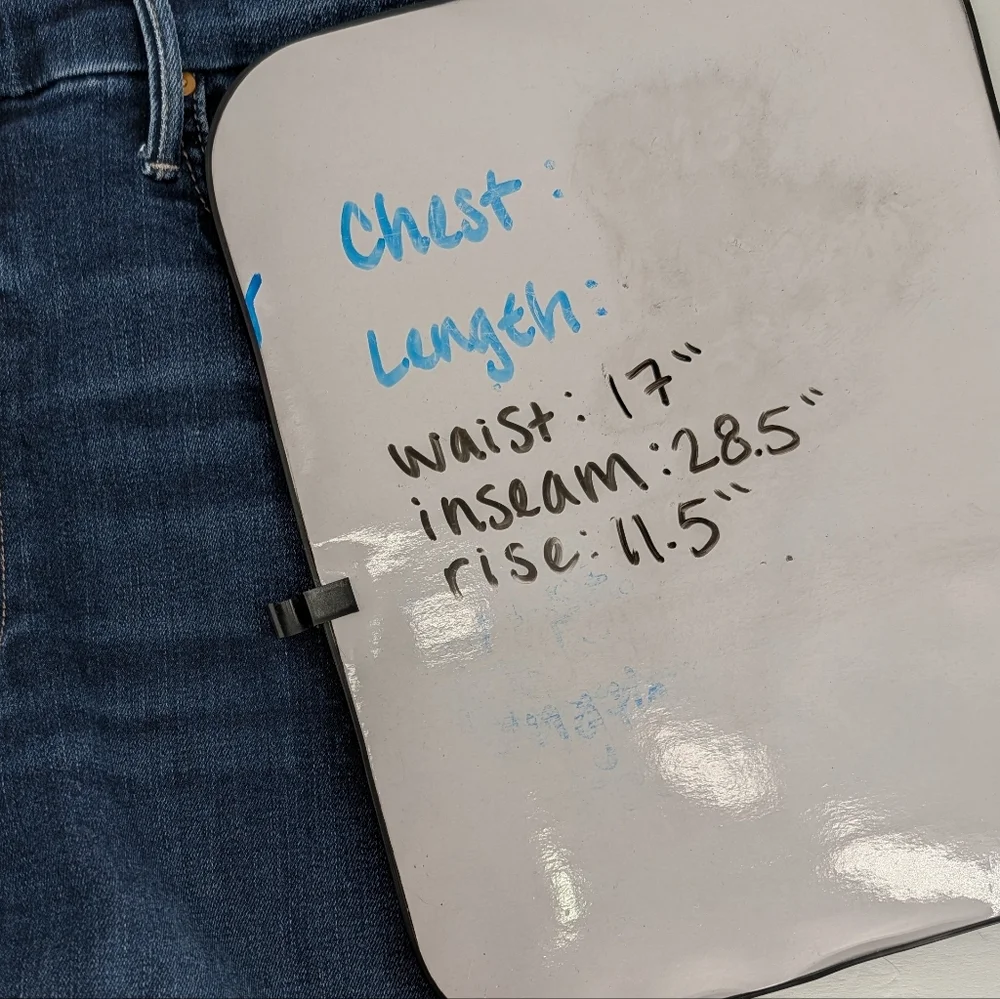 Chest:
Length:
waist: 17"
inseam: 28.5"
rise: 11.5"